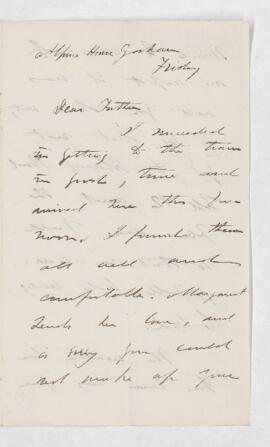 Alpine House Gorham
Friday
Dear Father
I succeeded
in getting to the train
in good time and
arrived here this fore
noon. I found them
all well and
comfortable. Margaret
sends her love, and
is sorry you could
not make up your